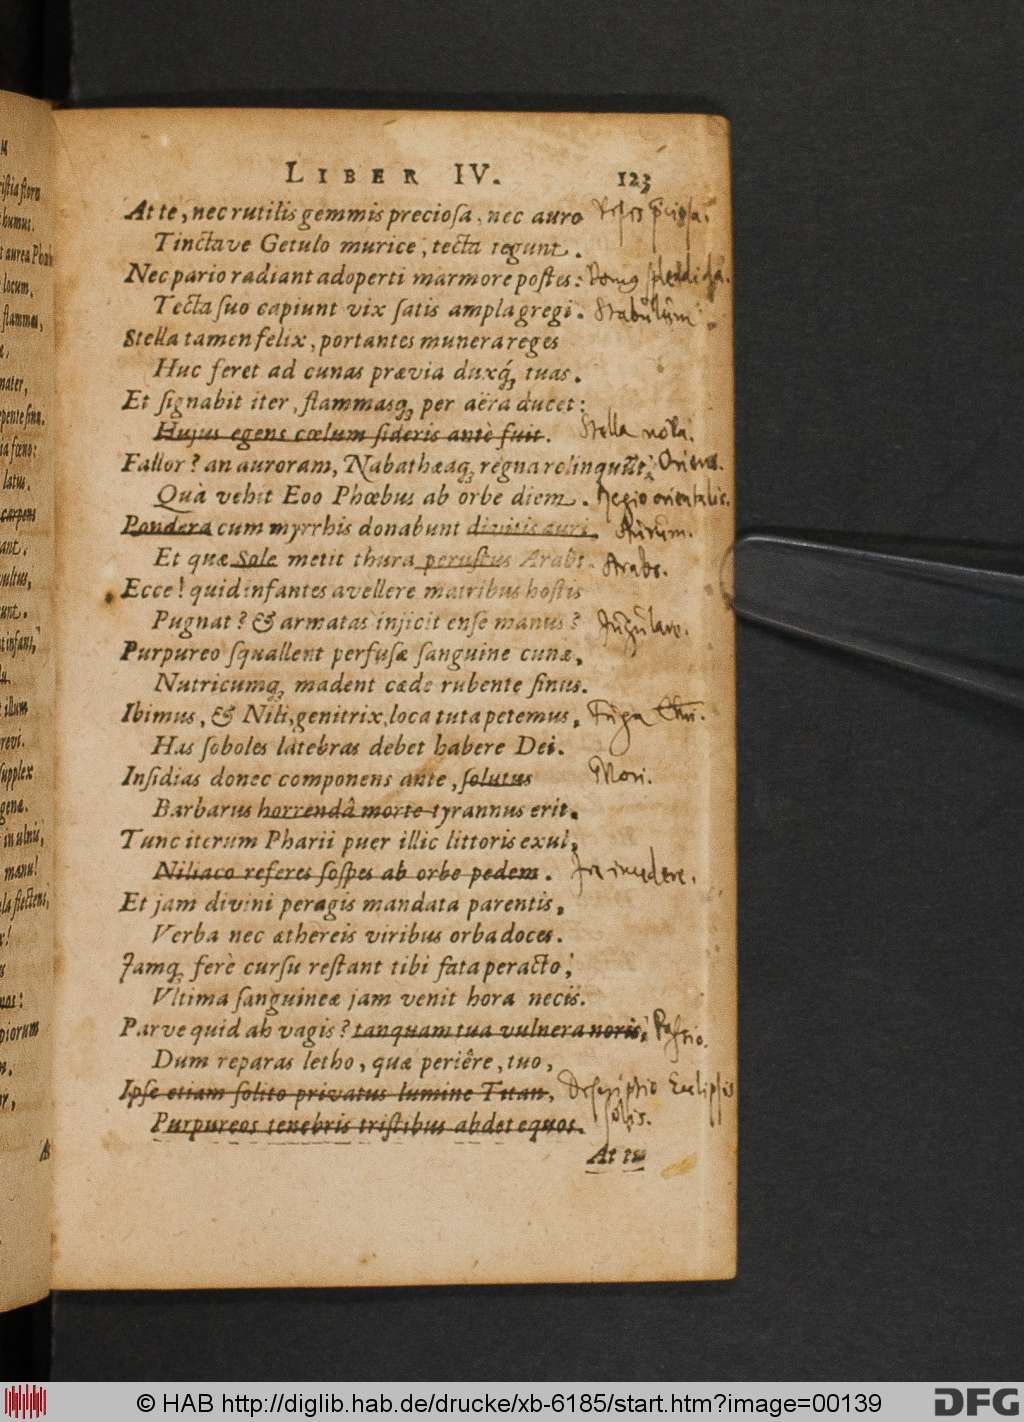 LIBER IV. 123
At te, nec rutilis gemmis preciosa, nec auro Vestis
Tinctave Getulo murice, tecta tegunt.
Nec pario radiant adoperti marmore postes: Domus splendida.
Tecta suo capiunt vix satis ampla gregi. Stabulum.
Stella tamen felix, portantes munera reges
Huc feret ad cunas prævia duxq́ꝫ tuas.
Et signabit iter, flammasqꝫ per aëra ducet:
Hujus egens cœlum sideris antè fuit. Stella nova.
Fallor? an auroram, Nabathæaqꝫ regna relinquūt, Oriens.
Quà vehit Eoo Phœbus ab orbe diem. Regio orientalis.
Pondera cum myrrhis donabunt divitis auri. Aurum.
Et quæ Sole metit thura perustus Arabs. Arabs.
Ecce! quid infantes avellere matribus hostis
Pugnat? & armatas injicit ense manus? Jugulare.
Purpureo squallent perfusæ sanguine cunæ,
Nutricumqꝫ madent cæde rubente sinus.
Ibimus, & Nili, genitrix, loca tuta petemus, Fuga Chri.
Has soboles latebras debet habere Dei.
Insidias donec componens ante, solutus Mori.
Barbarus horrendâ morte tyrannus erit.
Tunc iterum Pharii puer illic littoris exul,
Niliaco referes sospes ab orbe pedem.
Et jam divini peragis mandata parentis,
Verba nec æthereis viribus orba doces.
Jamqꝫ ferè cursu restant tibi fata peracto,
Ultima sanguineæ jam venit hora necis.
Parve quid ah vagis? tanquam tua vulnera noris, Passio.
Dum reparas letho, quæ periêre, tuo,
Ipse etiam solito privatus lumine Titan, Descriptio Eclipsis
Purpureos tenebris tristibus abdet equos. solis.
At tu
© HAB http://diglib.hab.de/drucke/xb-6185/start.htm?image=00139 DFG